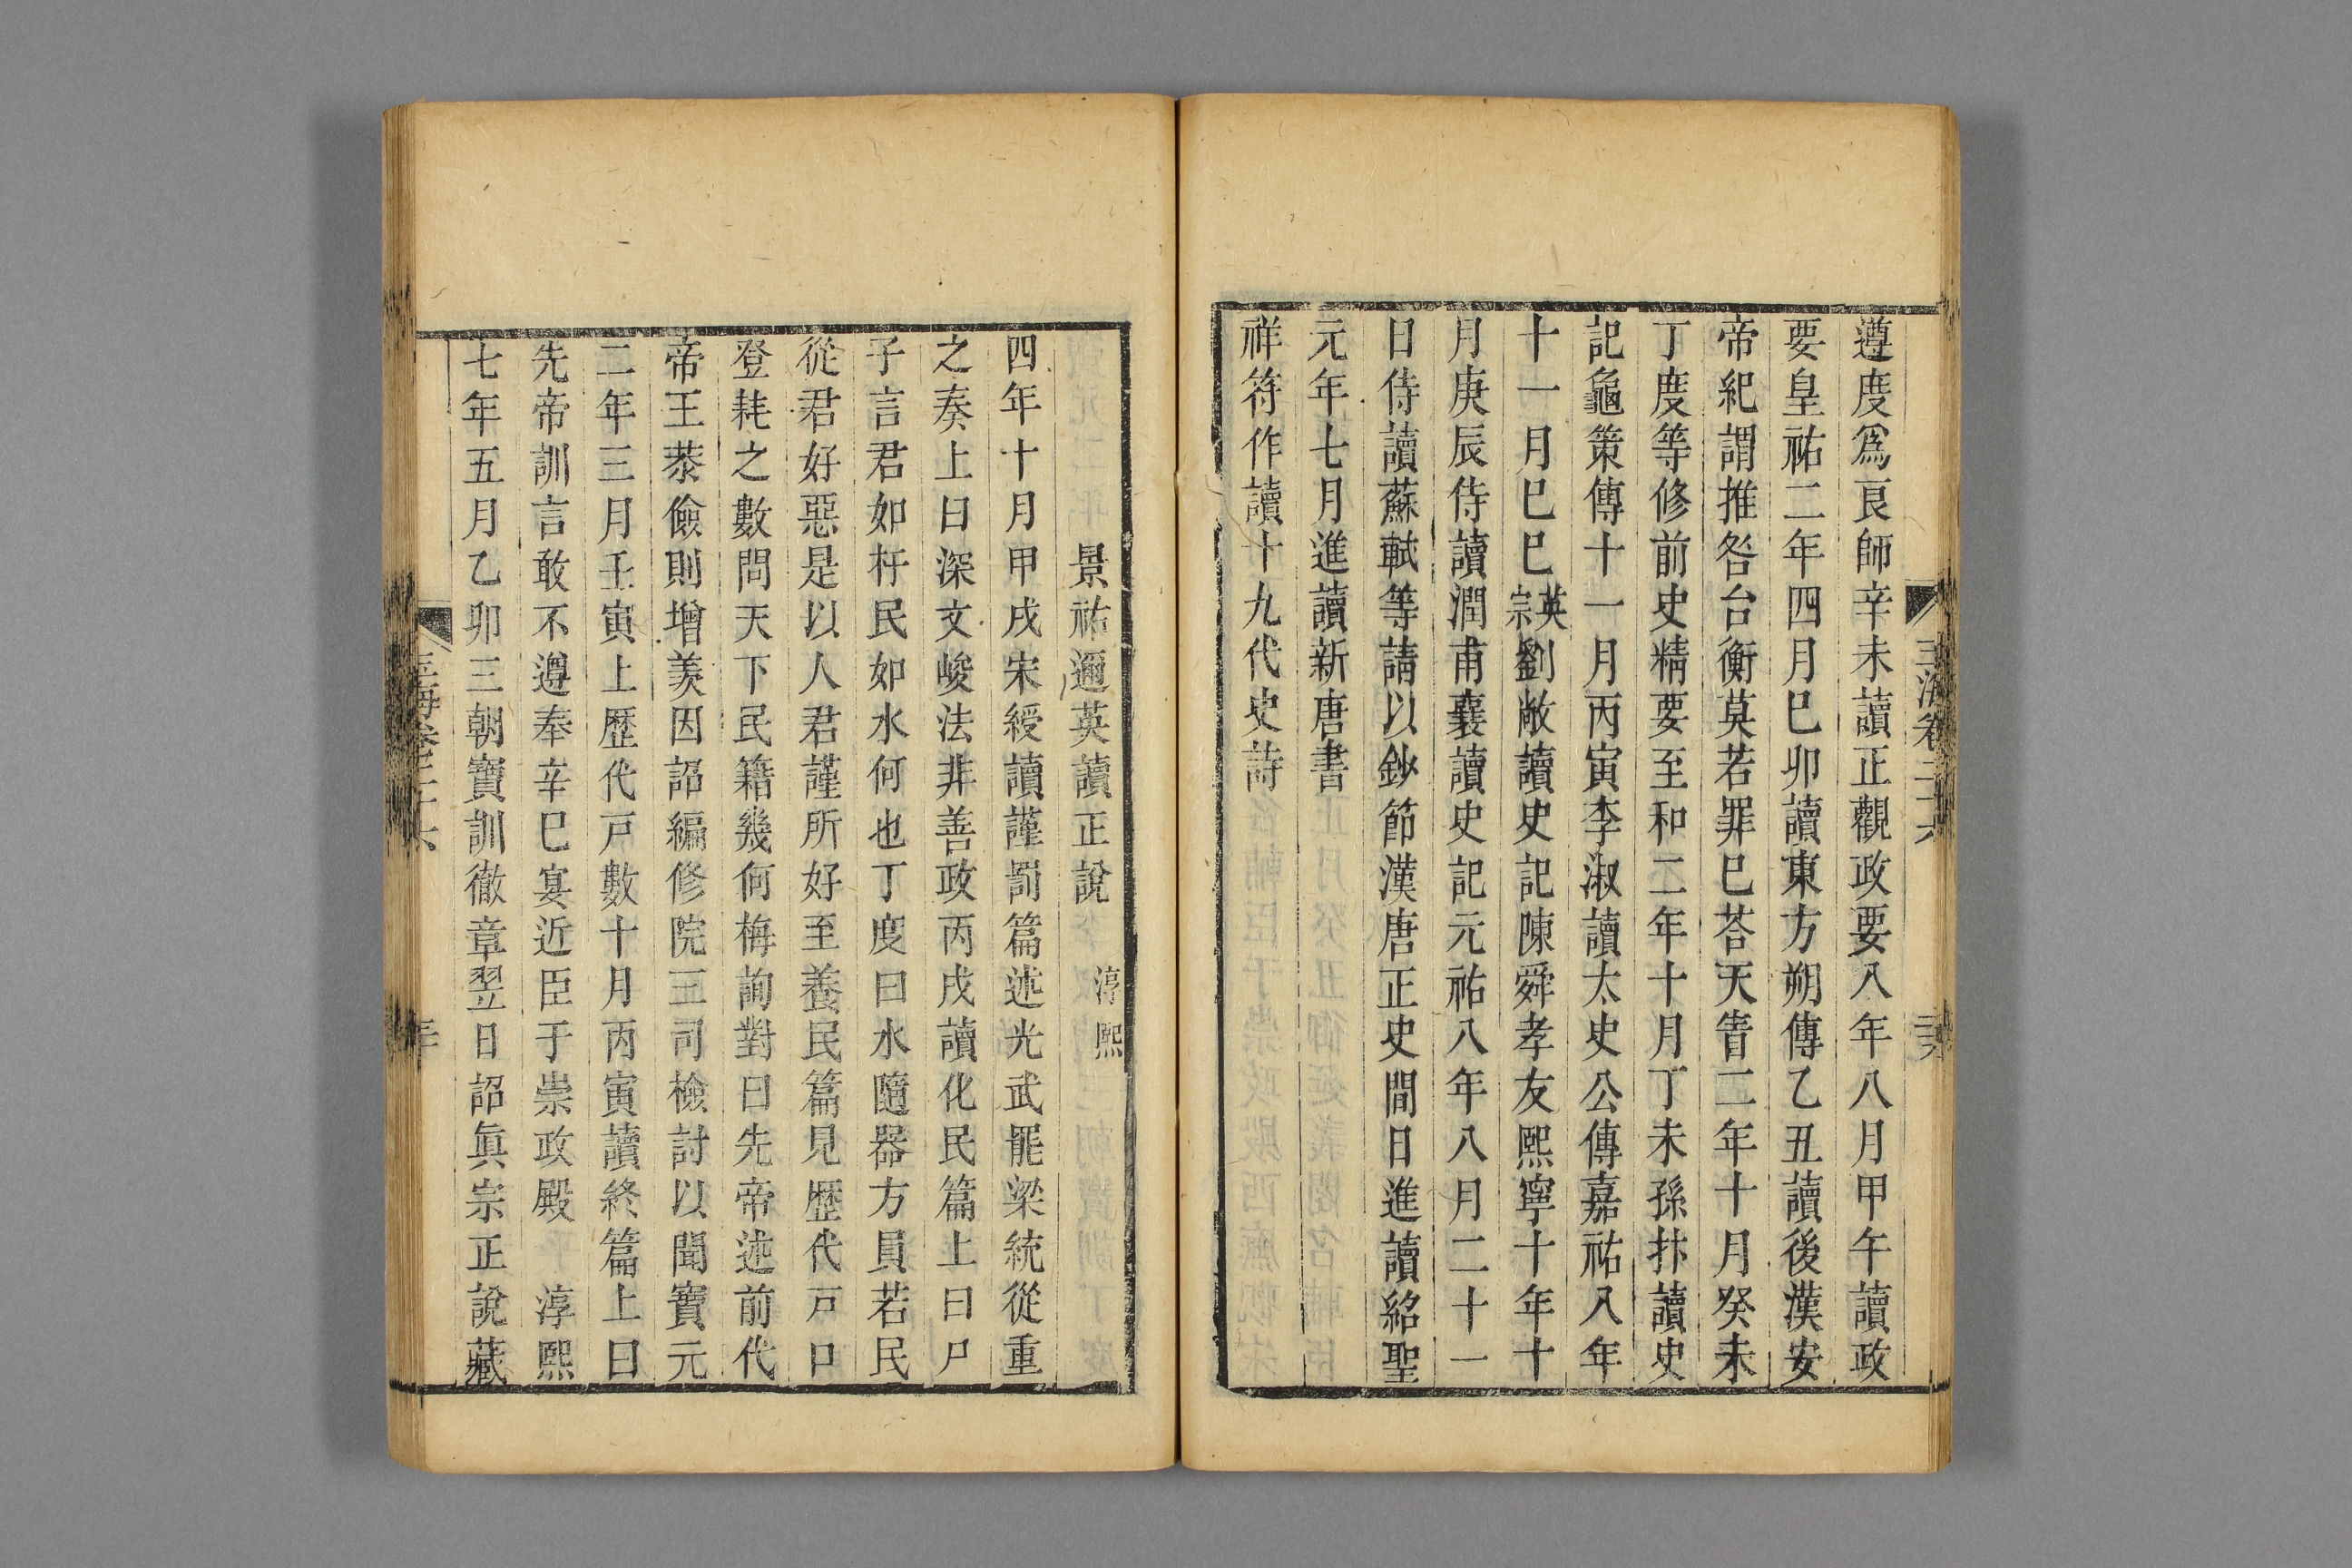 遵度爲良師辛未讀正觀政要八年八月甲午讀政
要皇祐二年四月巳卯讀東方朔傳乙丑讀後漢安
帝紀謂推咎台衡莫若罪巳荅天眚二年十月癸未
丁度等修前史精要至和二年十月丁未孫抃讀史
記龜策傳十一月丙寅李淑讀太史公傳嘉祐八年
十一月巳巳英宗劉敞讀史記陳舜孝友熙寧十年十
月庚辰侍讀潤甫襄讀史記元祐八年八月二十一
日侍讀蘇軾等請以鈔節漢唐正史間日進讀紹聖
元年七月進讀新唐書
祥符作讀十九代史詩
景祐邇英讀正說 淳熙
四年十月甲戌宋綬讀謹罰篇述光武罷梁統從重
之奏上曰深文峻法非善政丙戌讀化民篇上曰尸
子言君如杅民如水何也丁度曰水隨器方員若民
從君好惡是以人君謹所好至養民篇見歷代戸口
登耗之數問天下民籍幾何梅詢對曰先帝述前代
帝王恭儉則增羨因詔編修院三司檢討以聞寶元
二年三月壬寅上歷代戸數十月丙寅讀終篇上曰
先帝訓言敢不遵奉辛巳宴近臣于崇政殿 淳熙
七年五月乙卯三朝寶訓徹章翌日詔眞宗正說藏
玉海卷二十六